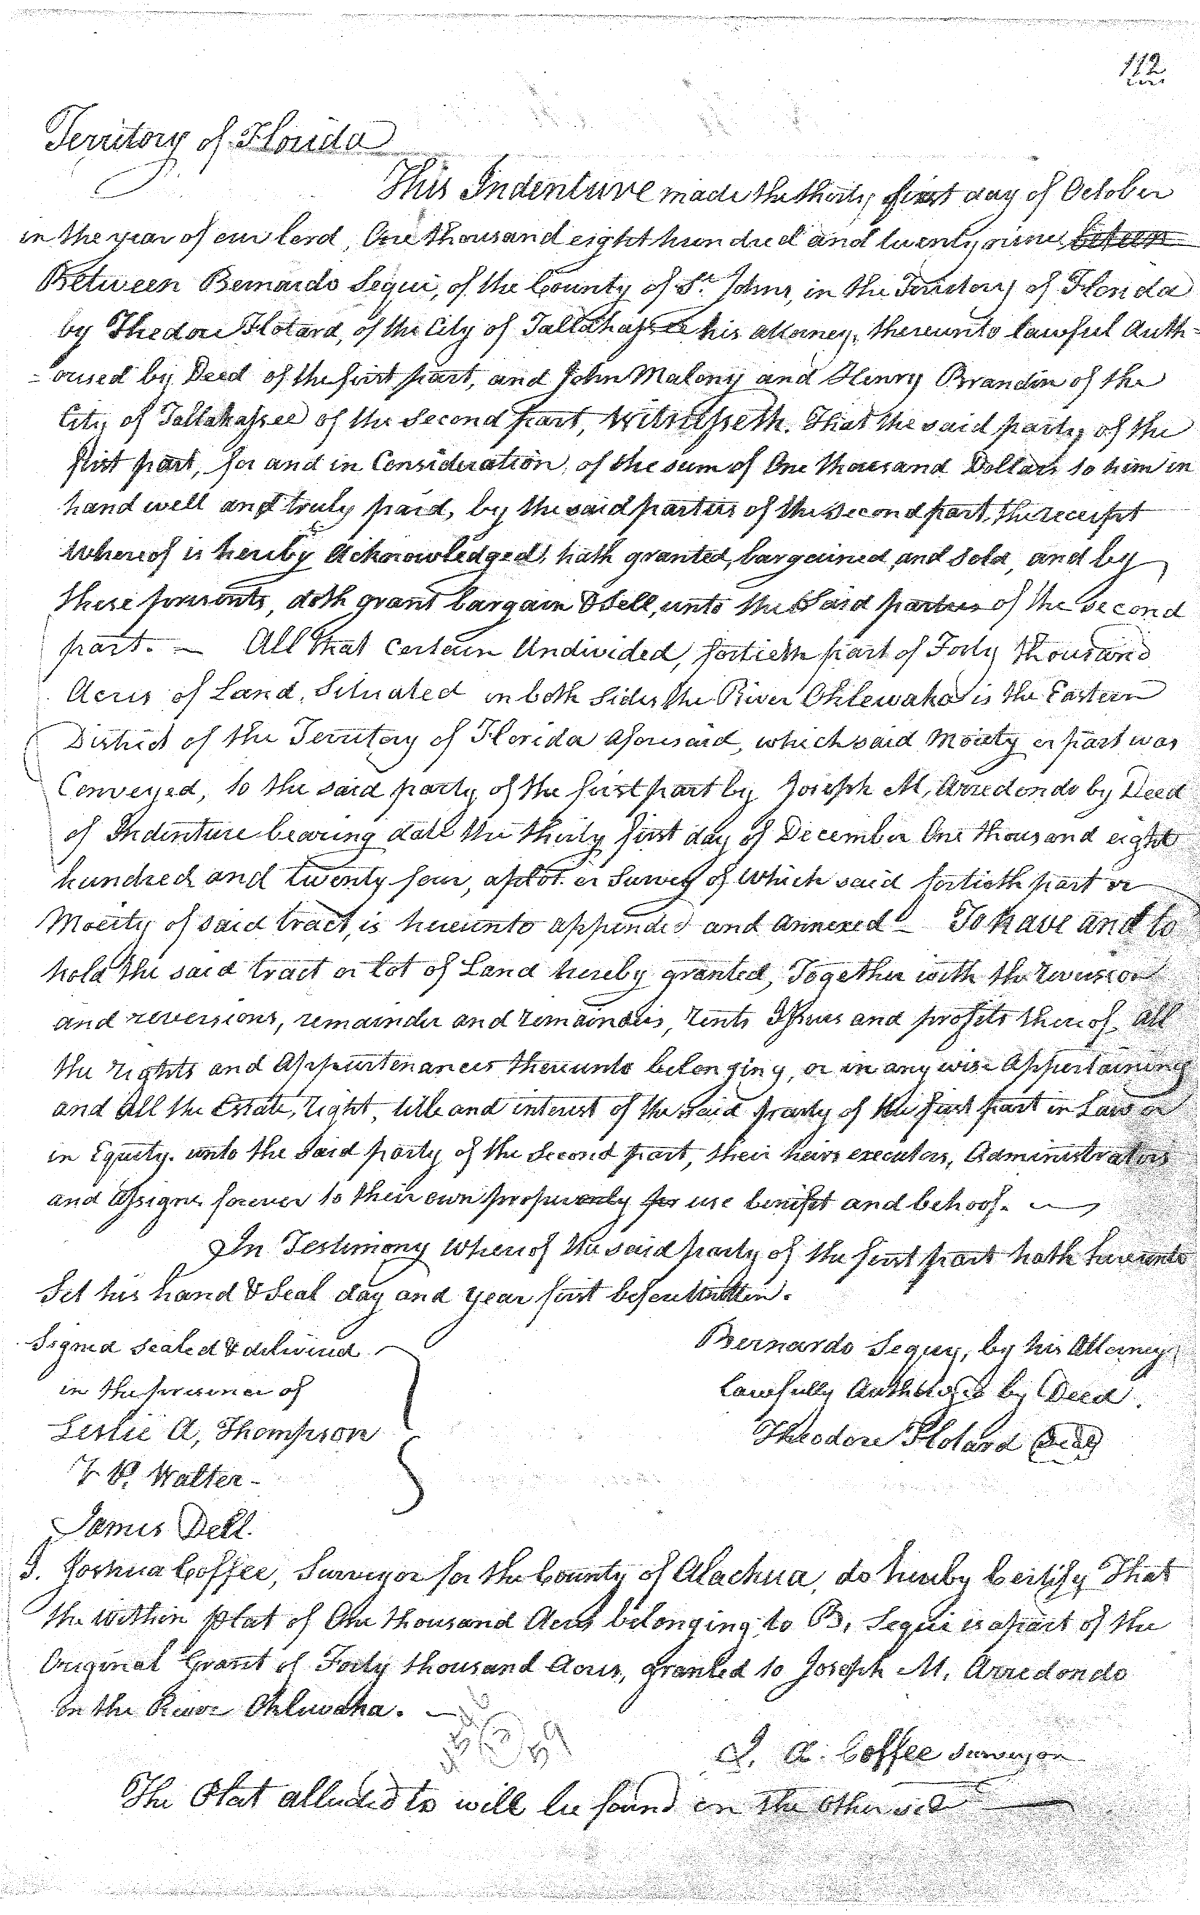 112
Territory of Florida
This Indenture made the thirty first day of October
in the year of our lord, One thousand eight hundred and twenty nine beteen
Between Bernardo Segui, of the County of St. Johns, in the Territory of Florida
by Thedore Flotard, of the City of Tallahassee his attorney, thereunto lawful Auth=
=orised by Deed of the first part, and John Malony and Henry Brandin of the
City of Tallahassee of the second part, Witnesseth. That the said party of the
first part, for and in Consideration, of the sum of One thousand Dollars to him in
hand well and truly paid, by the said parties of the second part, the receipt
Whereof is hereby Acknowledged, hath granted, bargained, and sold, and by
these presents, doth grant bargain & Sell, unto the Said parties of the second
part. — All that Certain Undivided, fortieth part of Forty thousand
Acres of Land, Situated in both Sides the River Oklewaha is the Eastern
District of the Territory of Florida aforesaid, which said Moiety or part was
Conveyed, to the said party of the first part by Joseph M, Arredondo by Deed
of Indenture bearing date the thirty first day of December One thousand eight
hundred and twenty four, a plot or Survey of which said fortieth part or
Moeity of said tract, is hereunto appended and annexed — To have and to
hold the said tract or lot of Land hereby granted, Together with the revercion
and reversions, remainder and remainders, rents Issues and profits thereof, all
the rights and Appurtenances thereunto belonging, or in any wise Appertaining
and all the Estate, right, title and interest of the said party of the first part in Law or
in Equity. unto the said party of the second part, their heirs executors, Administrators
and assigns forever to their own proper only for use benifit and behoof. —
In Testimony Whereof the said party of the first part hath hereunto
Set his hand & Seal day and year first before Written.
Signed sealed & delivered
in the presence of
Leslie A, Thompson
T P. Walter —
James Dell.
Bernardo Seguy, by his Attorney
lawfully Authorized by Deed.
Theodore Flotard Seal
I. Joshua Coffee, Surveyor for the County of Alachua, do hereby Certify That
the within plat of One thousand Acres belonging to B, Segui is a part of the
Original Grant of Forty thousand Acres, granted to Joseph M, Arredondo
on the River Oklewaha. —
J. A. Coffee Surveyor
The Plat alluded to will be found on the other side —